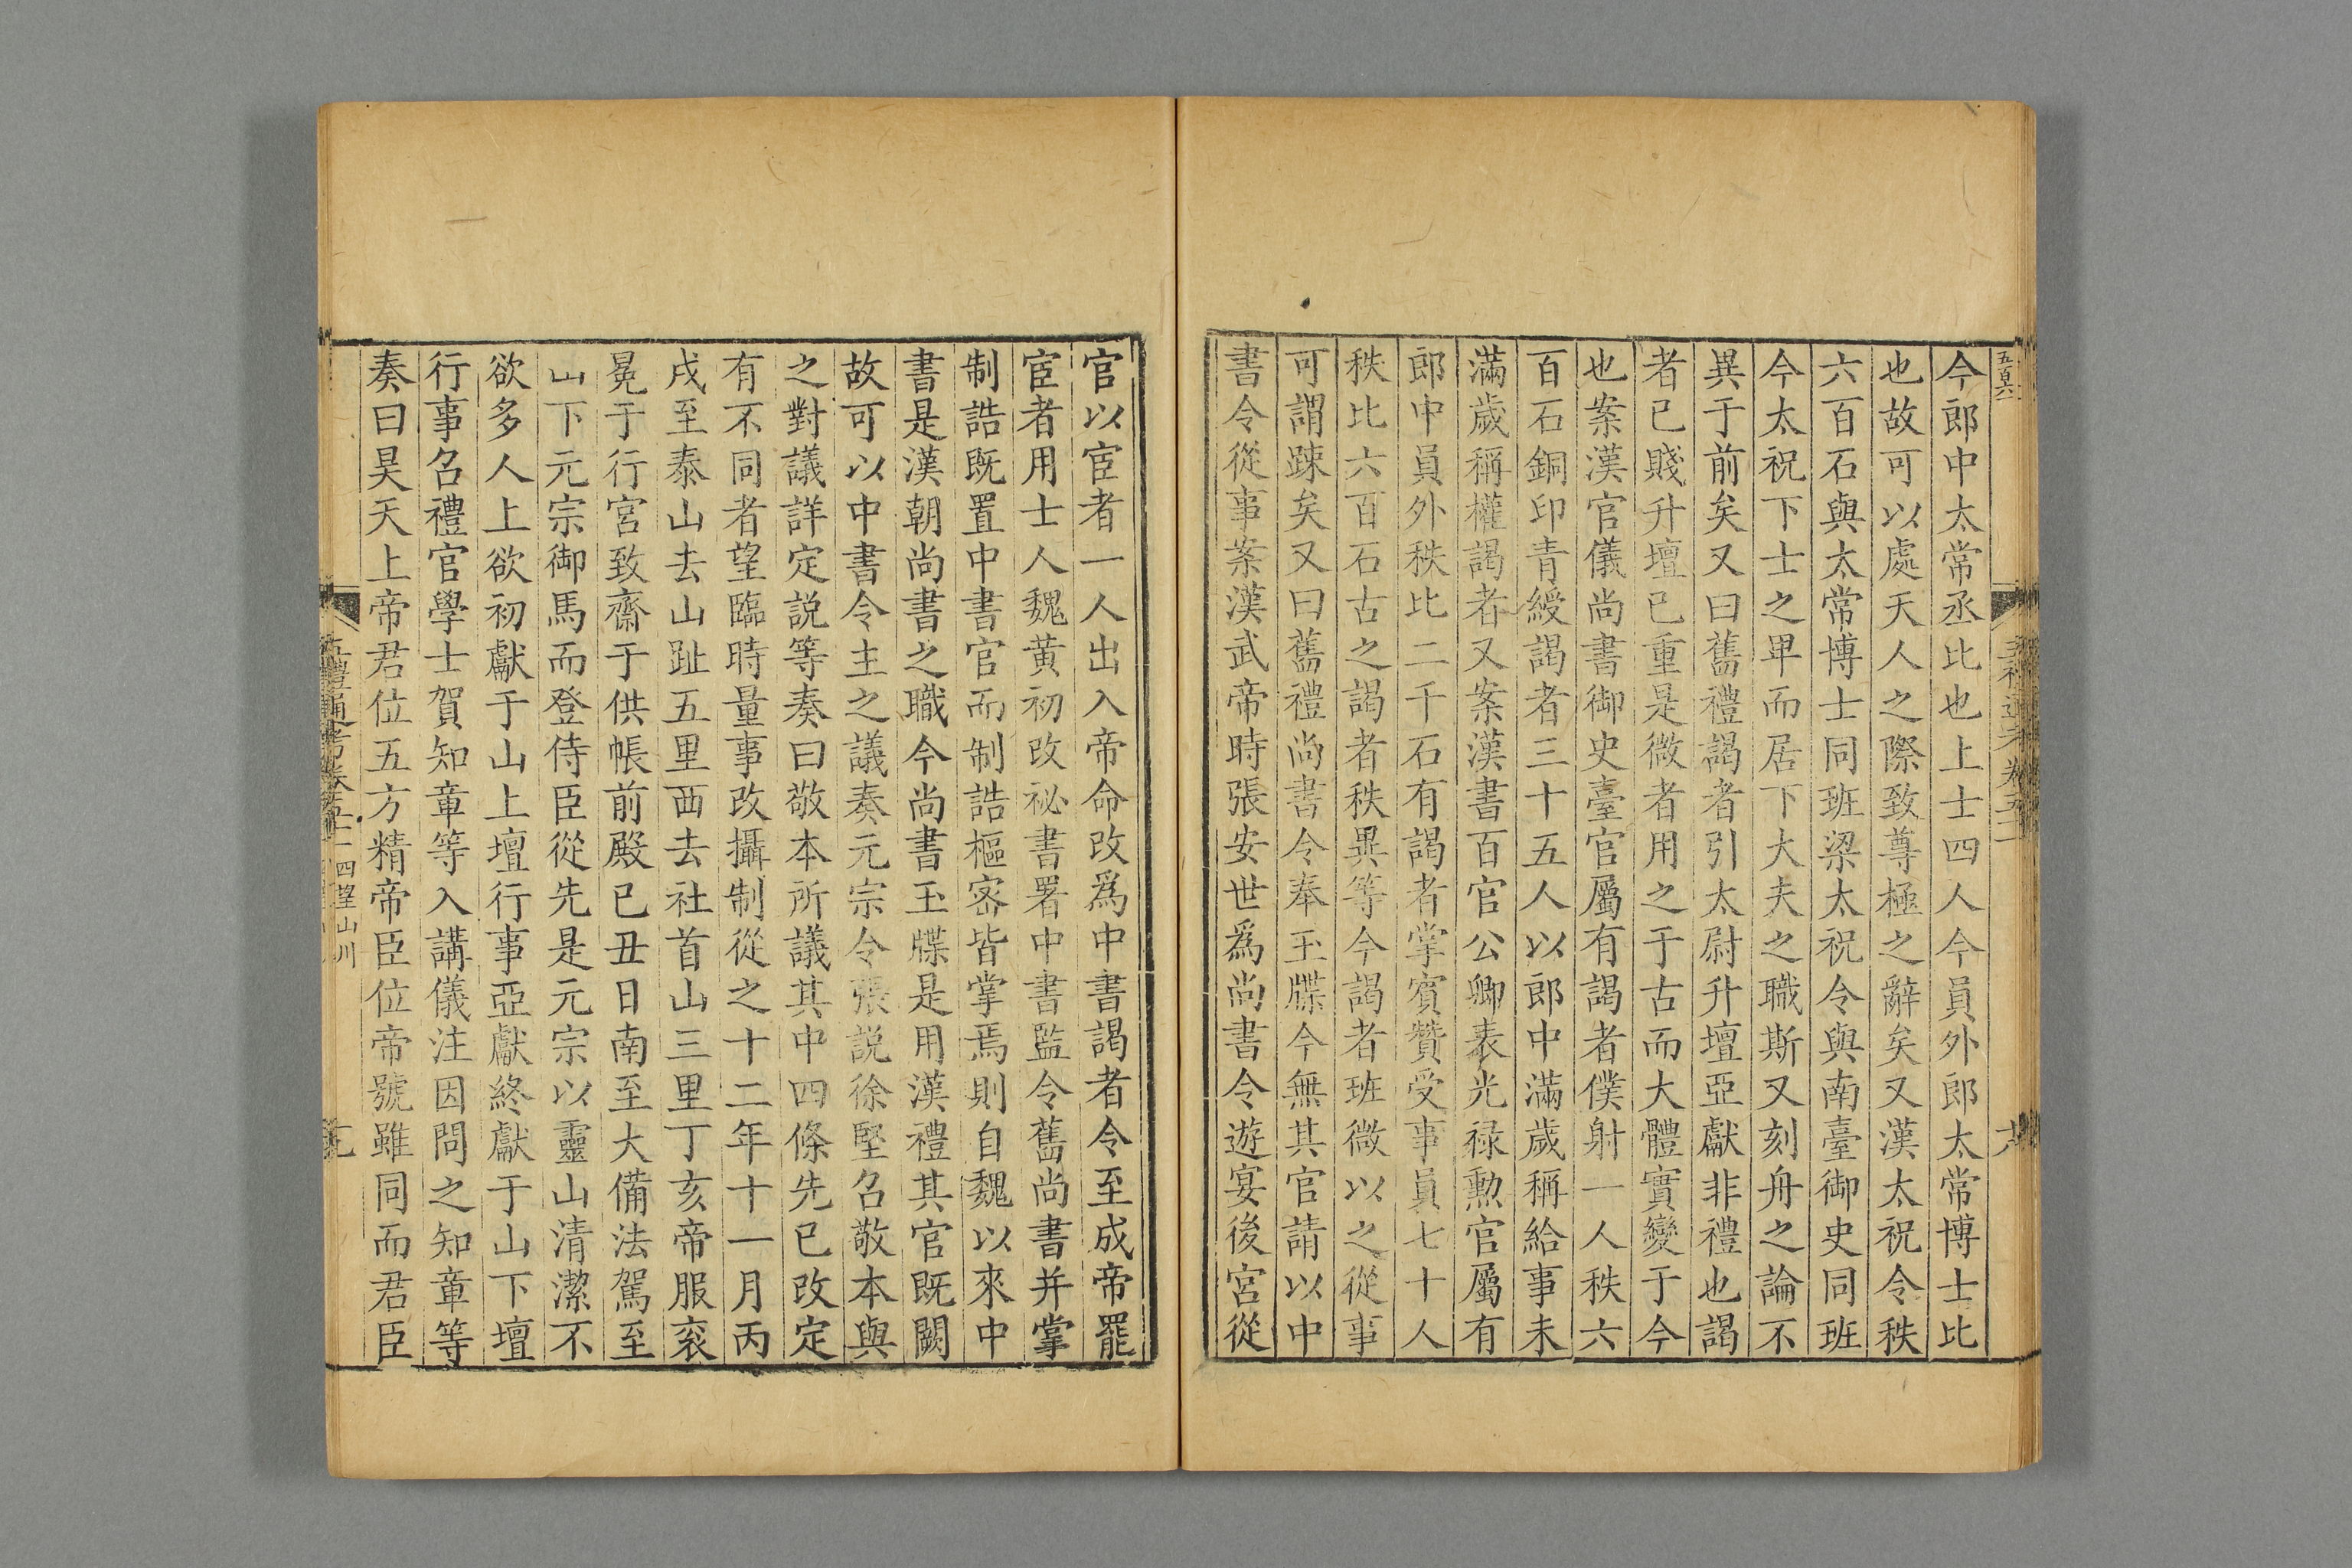 今郎中太常丞比也上士四人今員外郎太常博士比
也故可以處天人之際致尊極之辭矣又漢太祝令秩
六百石與太常博士同班梁太祝令與南臺御史同班
今太祝下士之卑而居下大夫之職斯又刻舟之論不
異于前矣又曰舊禮謁者引太尉升壇亞獻非禮也謁
者已賤升壇已重是微者用之于古而大體實變于今
也案漢官儀尚書御史臺官屬有謁者僕射一人秩六
百石銅印青綬謁者三十五人以郎中滿歲稱給事未
滿歲稱權謁者又案漢書百官公卿表光祿勲官屬有
郎中員外秩比二千石有謁者掌賓贊受事員七十人
秩比六百石古之謁者秩異等今謁者班微以之從事
可謂踈矣又曰舊禮尚書令奉玉牒今無其官請以中
書令從事案漢武帝時張安世爲尚書令遊宴後宮從
官以宦者一人出入帝命改爲中書謁者令至成帝罷
宦者用士人魏黄初改祕書署中書監令舊尚書并掌
制誥既置中書官而制誥樞密皆掌焉則自魏以來中
書是漢朝尚書之職今尚書玉牒是用漢禮其官既闕
故可以中書令主之議奏元宗令張説徐堅名敬本與
之對議詳定説等奏曰敬本所議其中四條先已改定
有不同者望臨時量事改攝制從之十二年十一月丙
戌至泰山去山趾五里西去社首山三里丁亥帝服衮
冕于行宮致齋于供帳前殿已丑日南至大備法駕至
山下元宗御馬而登侍臣從先是元宗以靈山清潔不
欲多人上欲初獻于山上壇行事亞獻終獻于山下壇
行事名禮官學士賀知章等入講儀注因問之知章等
奏曰昊天上帝君位五方精帝臣位帝號雖同而君臣
四望山川